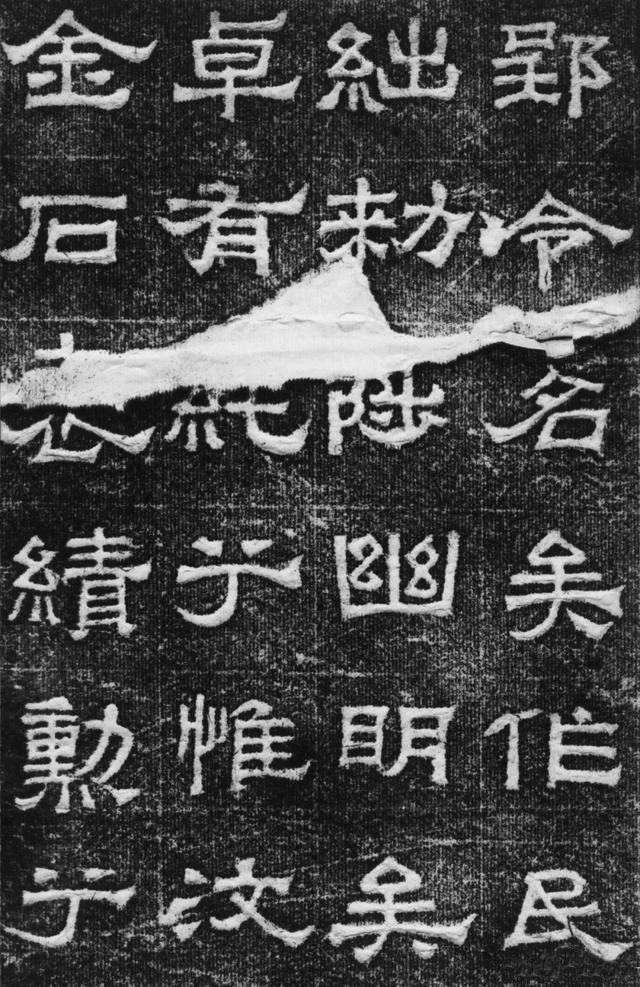 郢令名矣作民
絀勑陟幽明矣
卓有純于惟汶
金石表績勳于